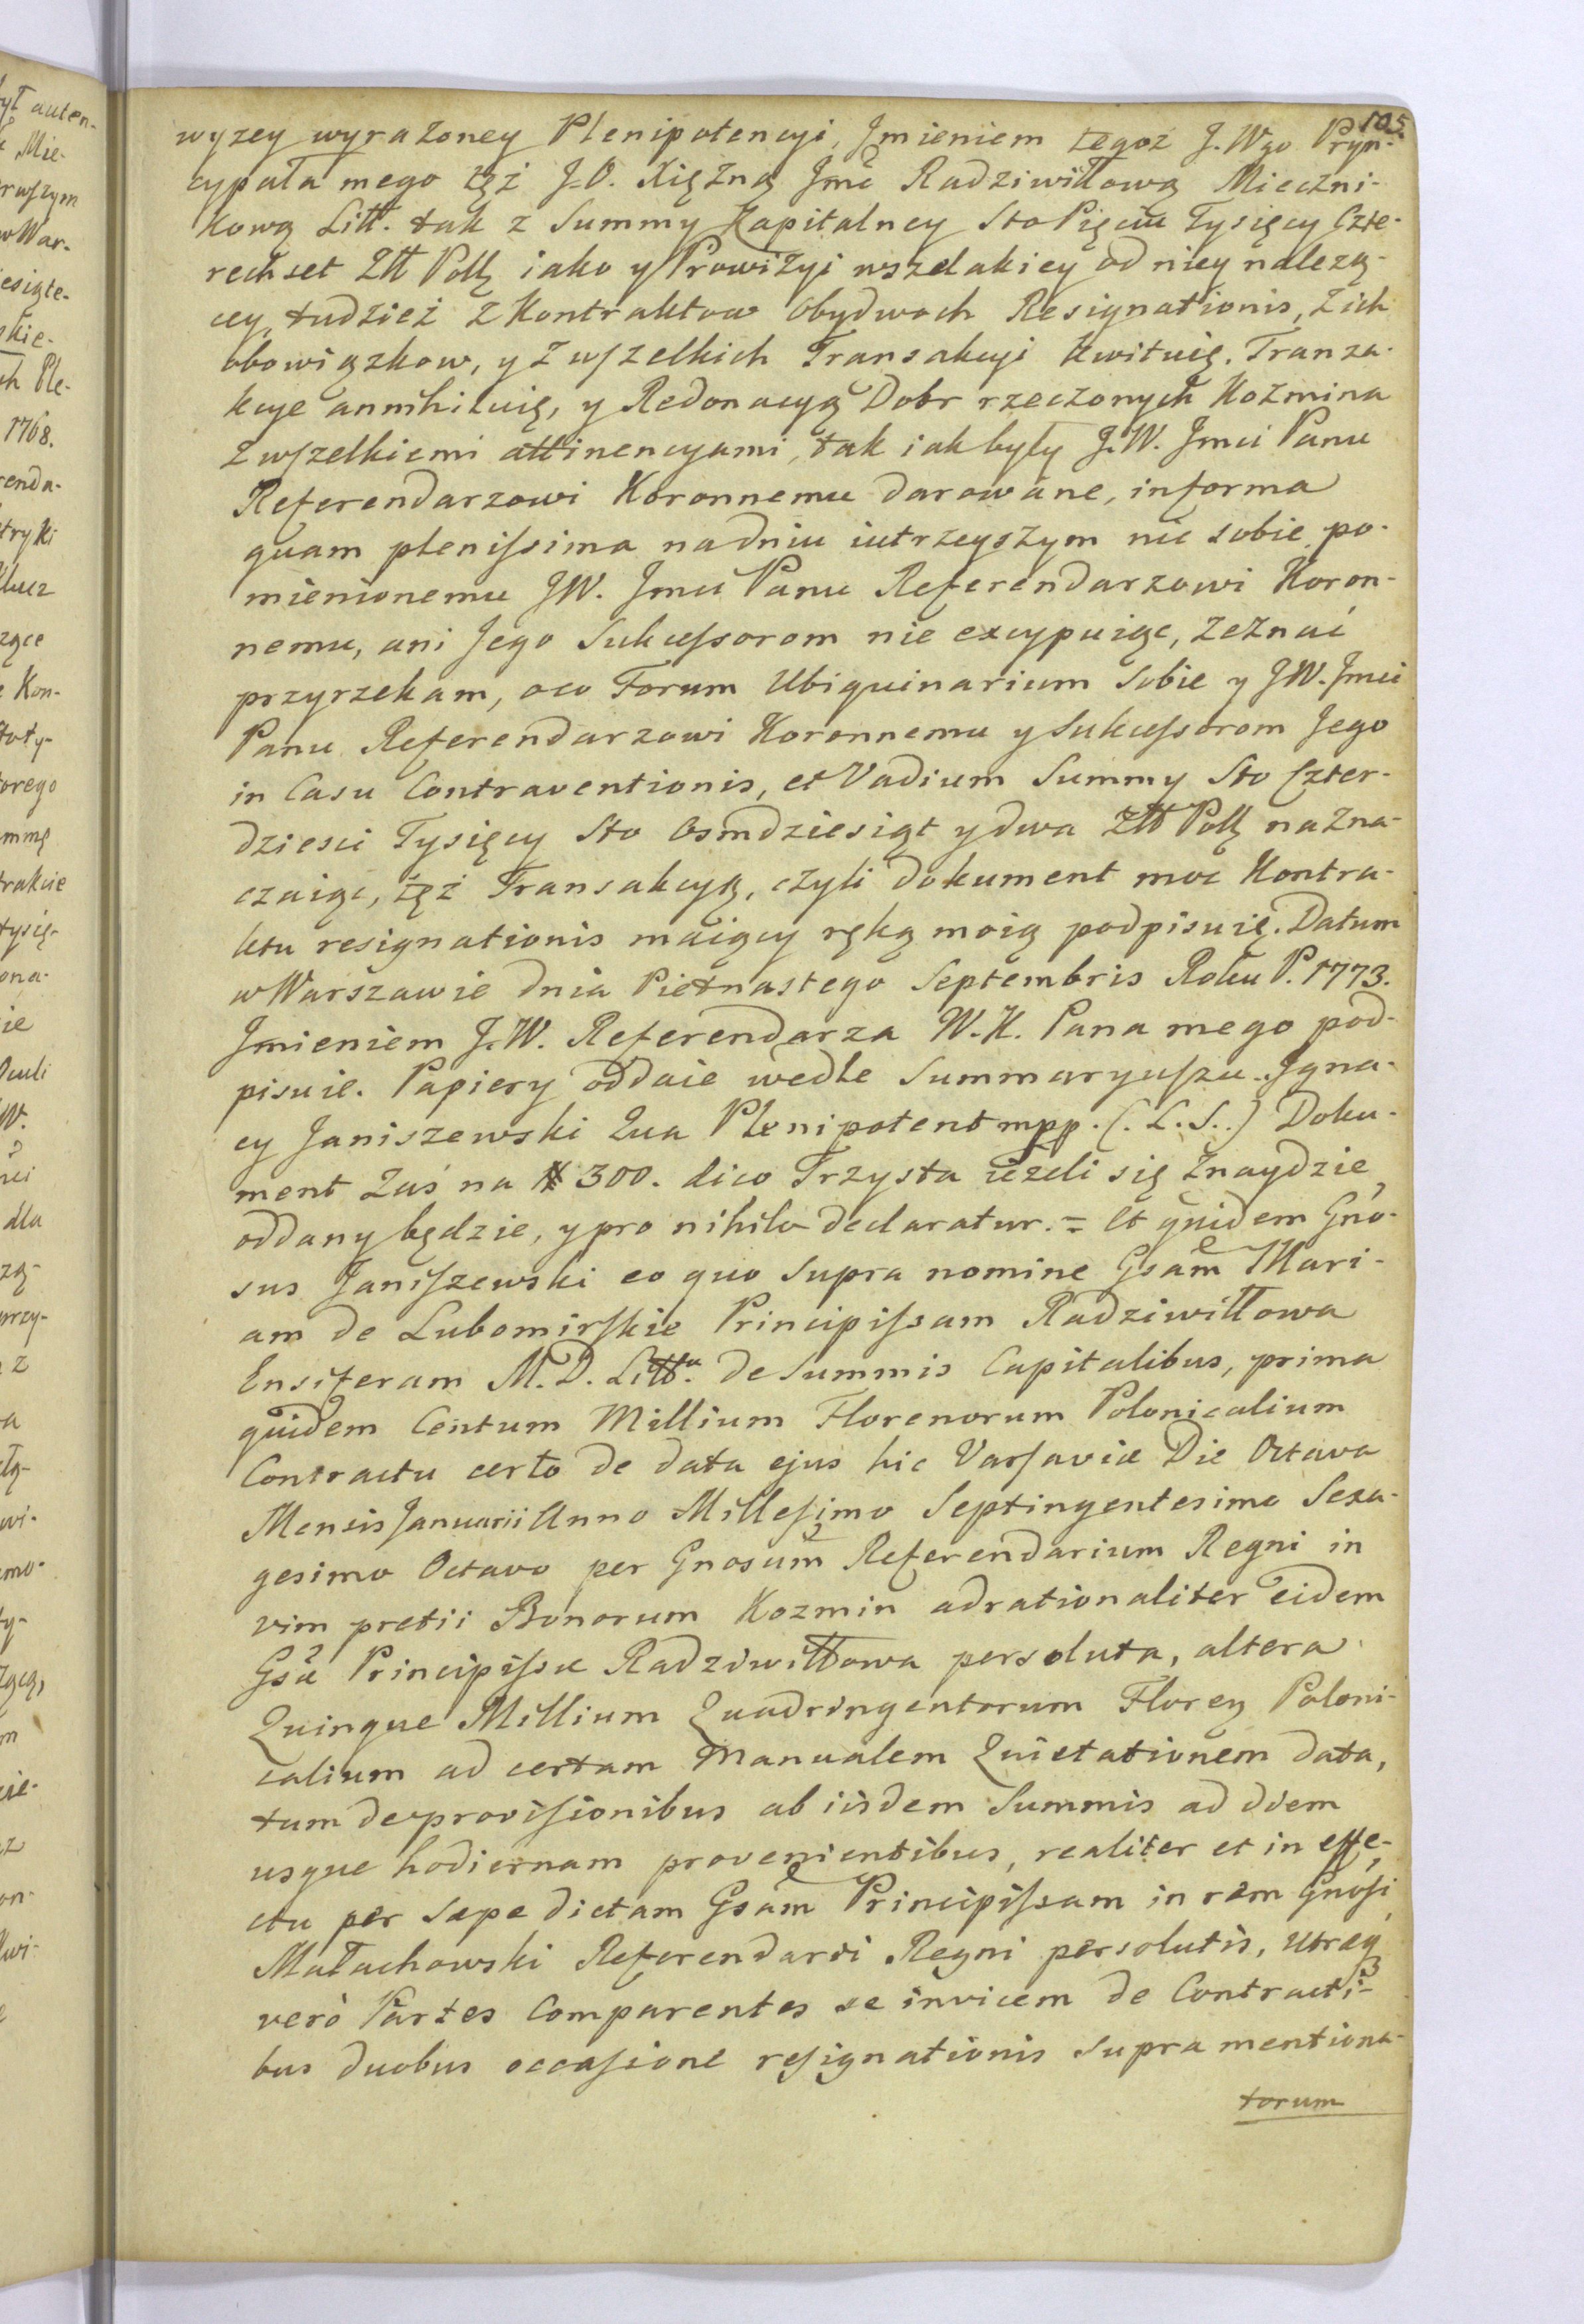 105.
wyzey wyrażoney Plenipotencyi, Jmieniem tegoż J. Wgo Pryn-
cypała mego tęż J. O. Xiężną Jmć Radziwiłłową Mieczni-
kową Litt. tak z Summy Kapitalney Sto Pięciu Tysięcy Czte-
rechset Złł Polł iako y Prowizyi wszelakiey od niey nalezą-
cey, tudzież z Kontraktow obydwoch Resignationis, z ich
obowiązkow, y z wszelkich Transakcyi kwituię. Tranza-
kcye annihiluię, y Redonacyą Dobr rzeczonych Kozmina
z wszelkiemi attinencyami, tak iak były J. W. Jmci Panu
Referendarzowi Koronnemu darowane, in forma
quam plenissima na dniu iutrzeyszym nic sobie, po-
mienionemu JW. Jmci Panu Referendarzowi Koron-
nemu, ani Jego Sukcessorom nie excypuiąc, zeznać
przyrzekam, oco Forum Ubiquinarium Sobie y JW. Jmci
Panu Referendarzowi Koronnemu y Sukcessorom Jego
in Casu Contraventionis, et Vadium Summy Sto Czter-
dziesci Tysięcy Sto Osmdziesiąt y dwa Złł Polł nazna-
czaiąc, tęż Transakcyą, czyli dokument moc Kontra-
ktu resignationis maiący ręką moią podpisuię. Datum
w Warszawie dnia Piętnastego Septembris Roku P. 1773.
Jmieniem J. W. Referendarza W. K. Pana mego pod-
pisuie. Papiery oddaie wedle Summaryuszu. Jgna-
cy Janiszewski Qua Plenipotent mpp. (. L. S. .) Doku-
ment Zaś na # 300. dico Trzysta ieżeli się znaydzie,
oddany będzie, y pro nihilo declaratur. = Et quidem Gno-
sus Janiszewski eo quo supra nomine Gsam Mari-
am de Lubomirskie Principissam Radziwiłłowa
Ensiferam M. D. Litt.a de Summis Capitalibus, prima
quidem Centum Millium Florenorum Polonicalium
Contractu certo de data ejus hic Varsaviæ Die Octava
Mensis Januarii Anno Millesimo Septingentesimo Sexa-
gesimo Octavo per Gnosum Referendarium Regni in
vim pretii Bonorum Kozmin adrationaliter eidem
Gsæ Principissæ Radziwiłłowa persoluta, altera
Quinque Millium Quadringentorum Floren Poloni-
calium ad certam Manualem Quietationem data,
tum de provisionibus ab iisdem Summis ad diem
usque hodiernam provenientibus, realiter et in effe-
ctu per sæpe dictam Gsam Principissam in rem Gnosi
Małachowski Referendarii Regni persolutis, utræq
verò Partes Comparentes se invicem de Contracti-
bus duobus occasione resignationis supra mentiona-
torum